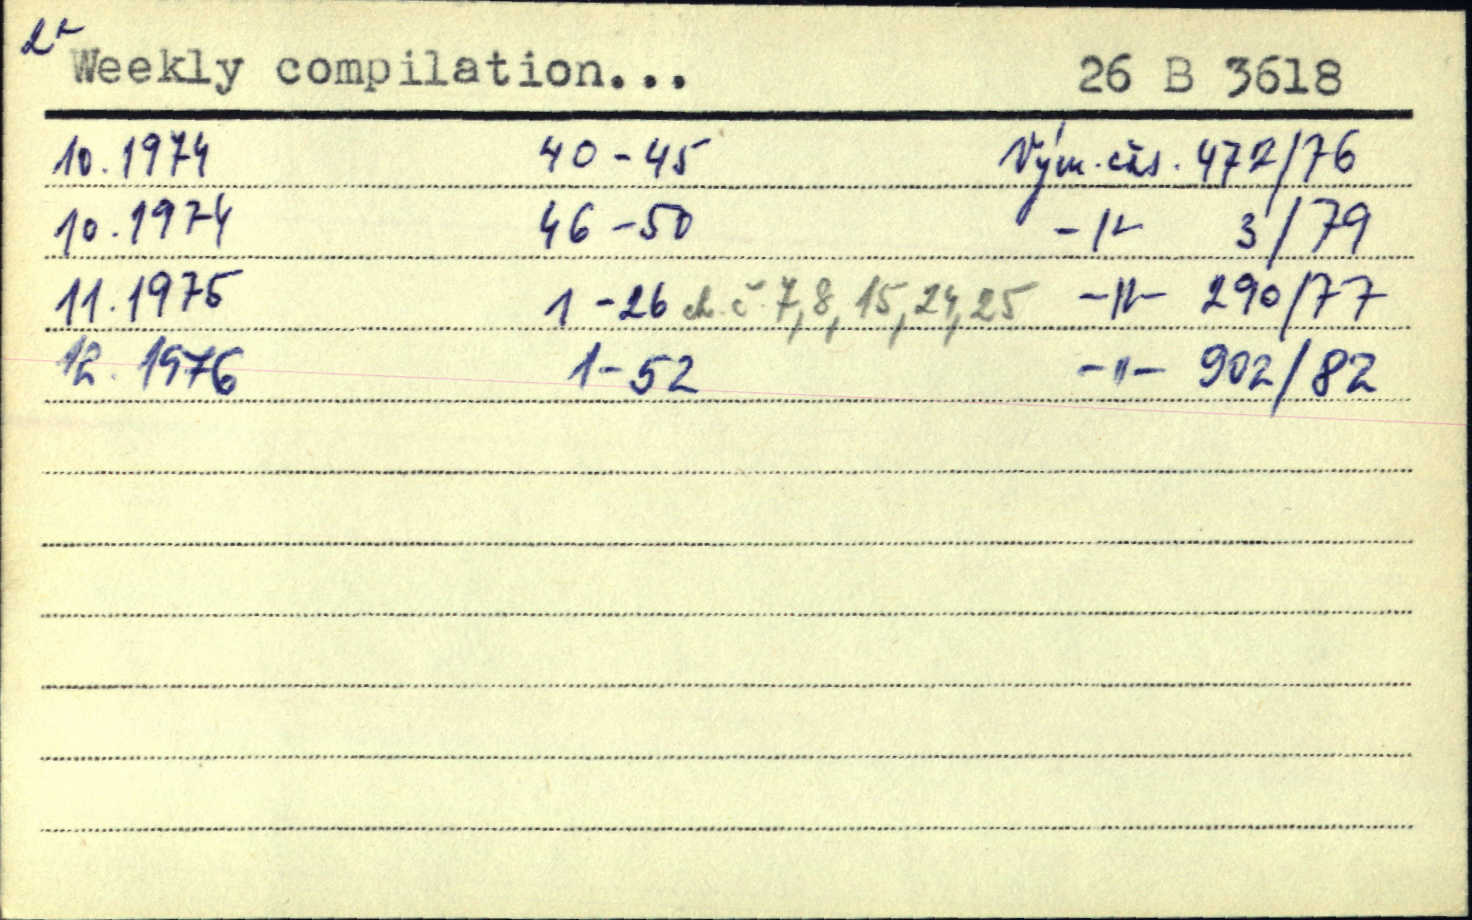 Weekly compilation... 26 B 3618
10.1974 40-45 Vým. čas. 472/76
10.1974 46-50 -"- 3/79
11.1975 1-26 ch. č. 7,8,15,24,25 -"- 290/77
12.1976 1-52 -"- 902/82